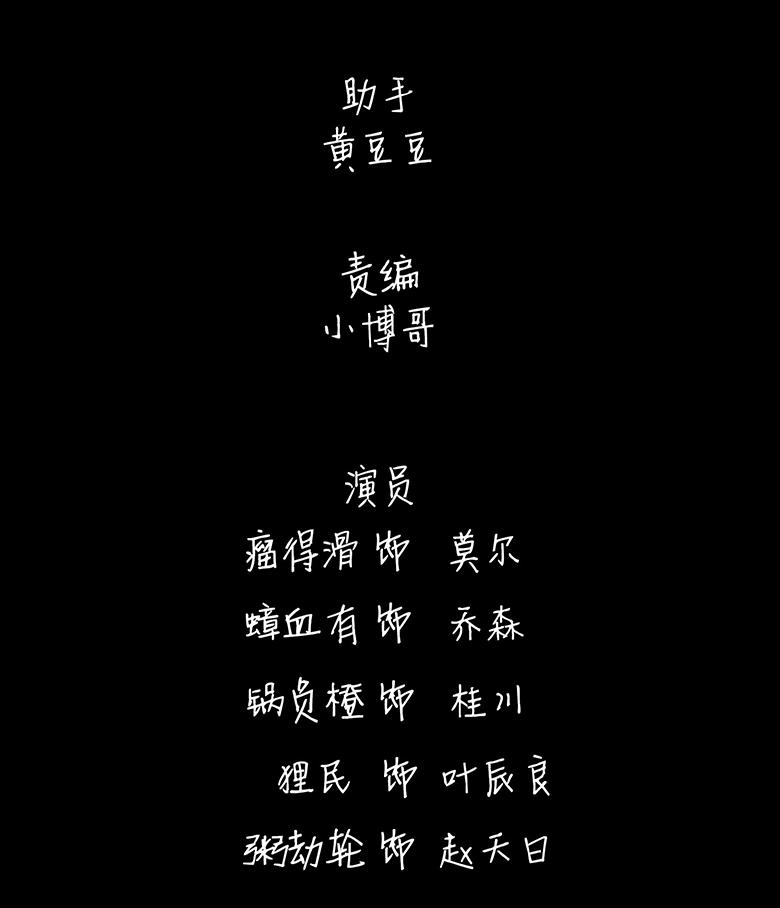 助手
黄豆豆
责编
小博哥
演员
瘤得滑 饰 莫尔
蟑血有 饰 乔森
锅员橙 饰 桂川
狸民 饰 叶辰良
粥劫轮 饰 赵天日